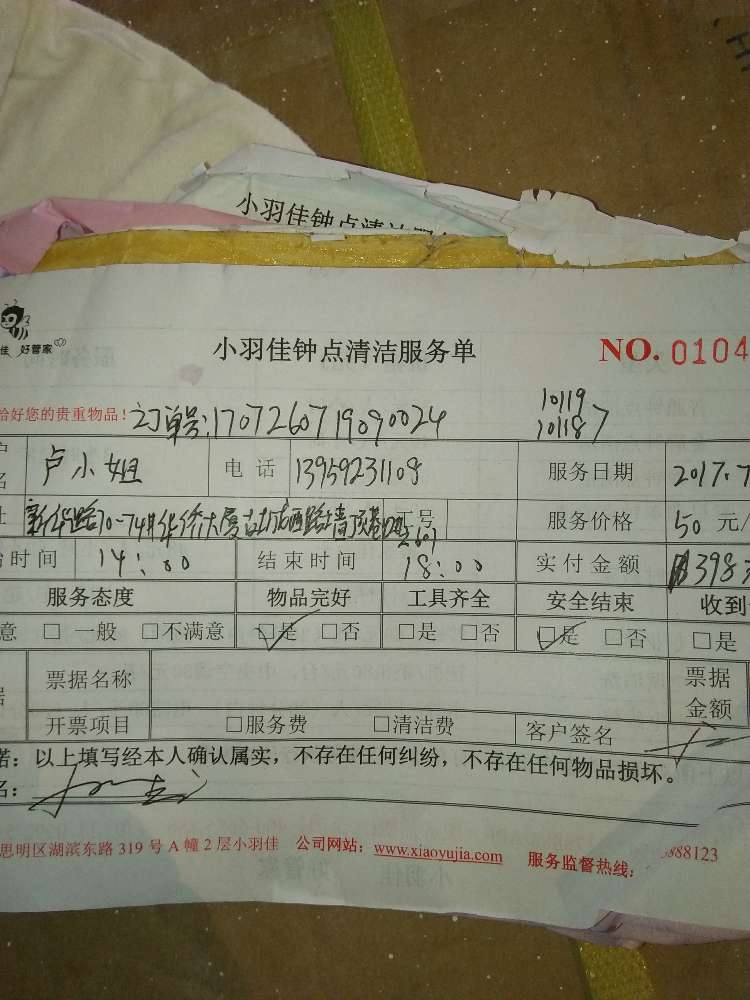 小羽佳钟点清洁服
佳 好管家
小羽佳钟点清洁服务单 NO. 0104
给好您的贵重物品! 订单号:1707260719090024 10119
101187
名 卢小姐 电话 13959231109 服务日期 2017.7
址 新华路70-74号华侨大厦 工号 2607 服务价格 50 元/
始时间 14:00 结束时间 18:00 实付金额 398
服务态度 物品完好 工具齐全 安全结束 收到
意 □ 一般 □不满意 □是 □否 □是 □否 □是 □否 □是
据 票据名称 票据
金额
开票项目 □服务费 □清洁费 客户签名
诺: 以上填写经本人确认属实,不存在任何纠纷,不存在任何物品损坏。
名:
思明区湖滨东路 319 号 A 幢 2 层小羽佳 公司网站: www.xiaoyujia.com 服务监督热线: 5888123